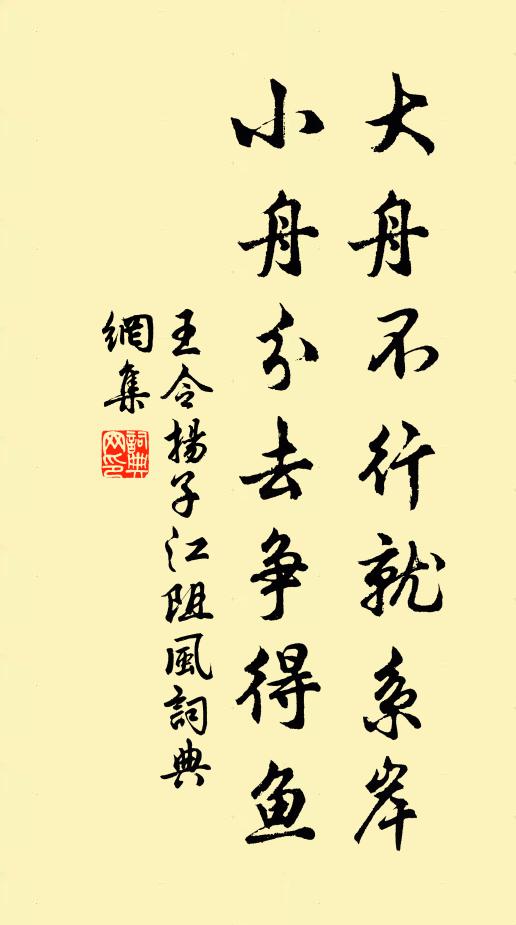 大舟不行就系岸
小舟分去争得鱼
王令揚子江阻風詞典
網集
詞典
网印